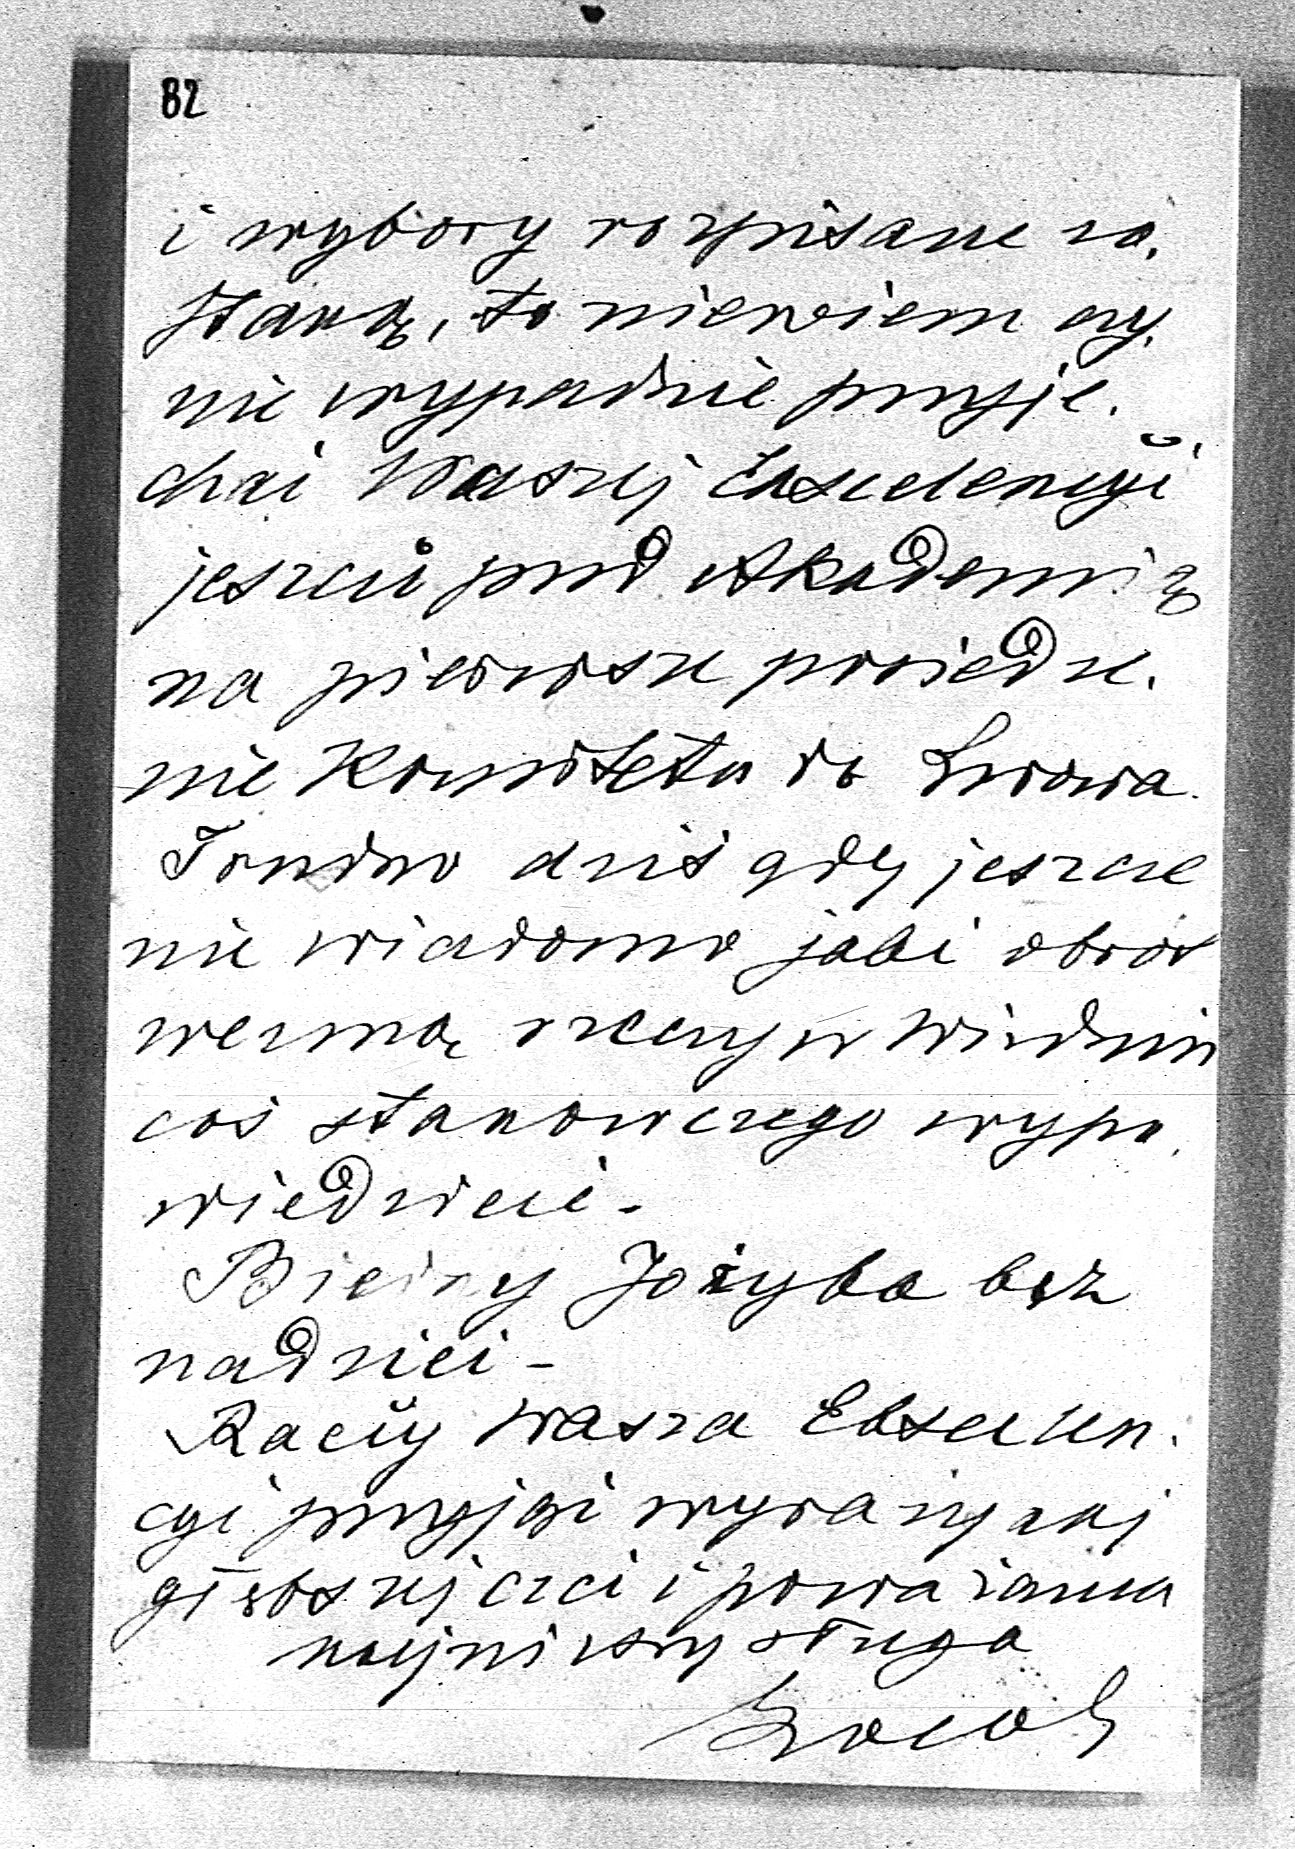 82
i wybory rozpisane zo.
staną, to niewiem czy.
nie wypadnie przyje.
chać Waszej Ekscelencyi
jeszcze przed Akademią
na pierwsze posiedze.
nie Komitetu do Lwowa.
Trudno dziś gdy jeszcze
nie wiadomo jaki obrót
wezmą rzeczy w Wiedniu
coś stanowczego wypo.
wiedzieć.
Biedny Józyka bez
nadziei -
Raczy Wasza Ekscelen.
cyi przyjąć wyrazy naj
głębszej czci i poważania
najniższy sługa